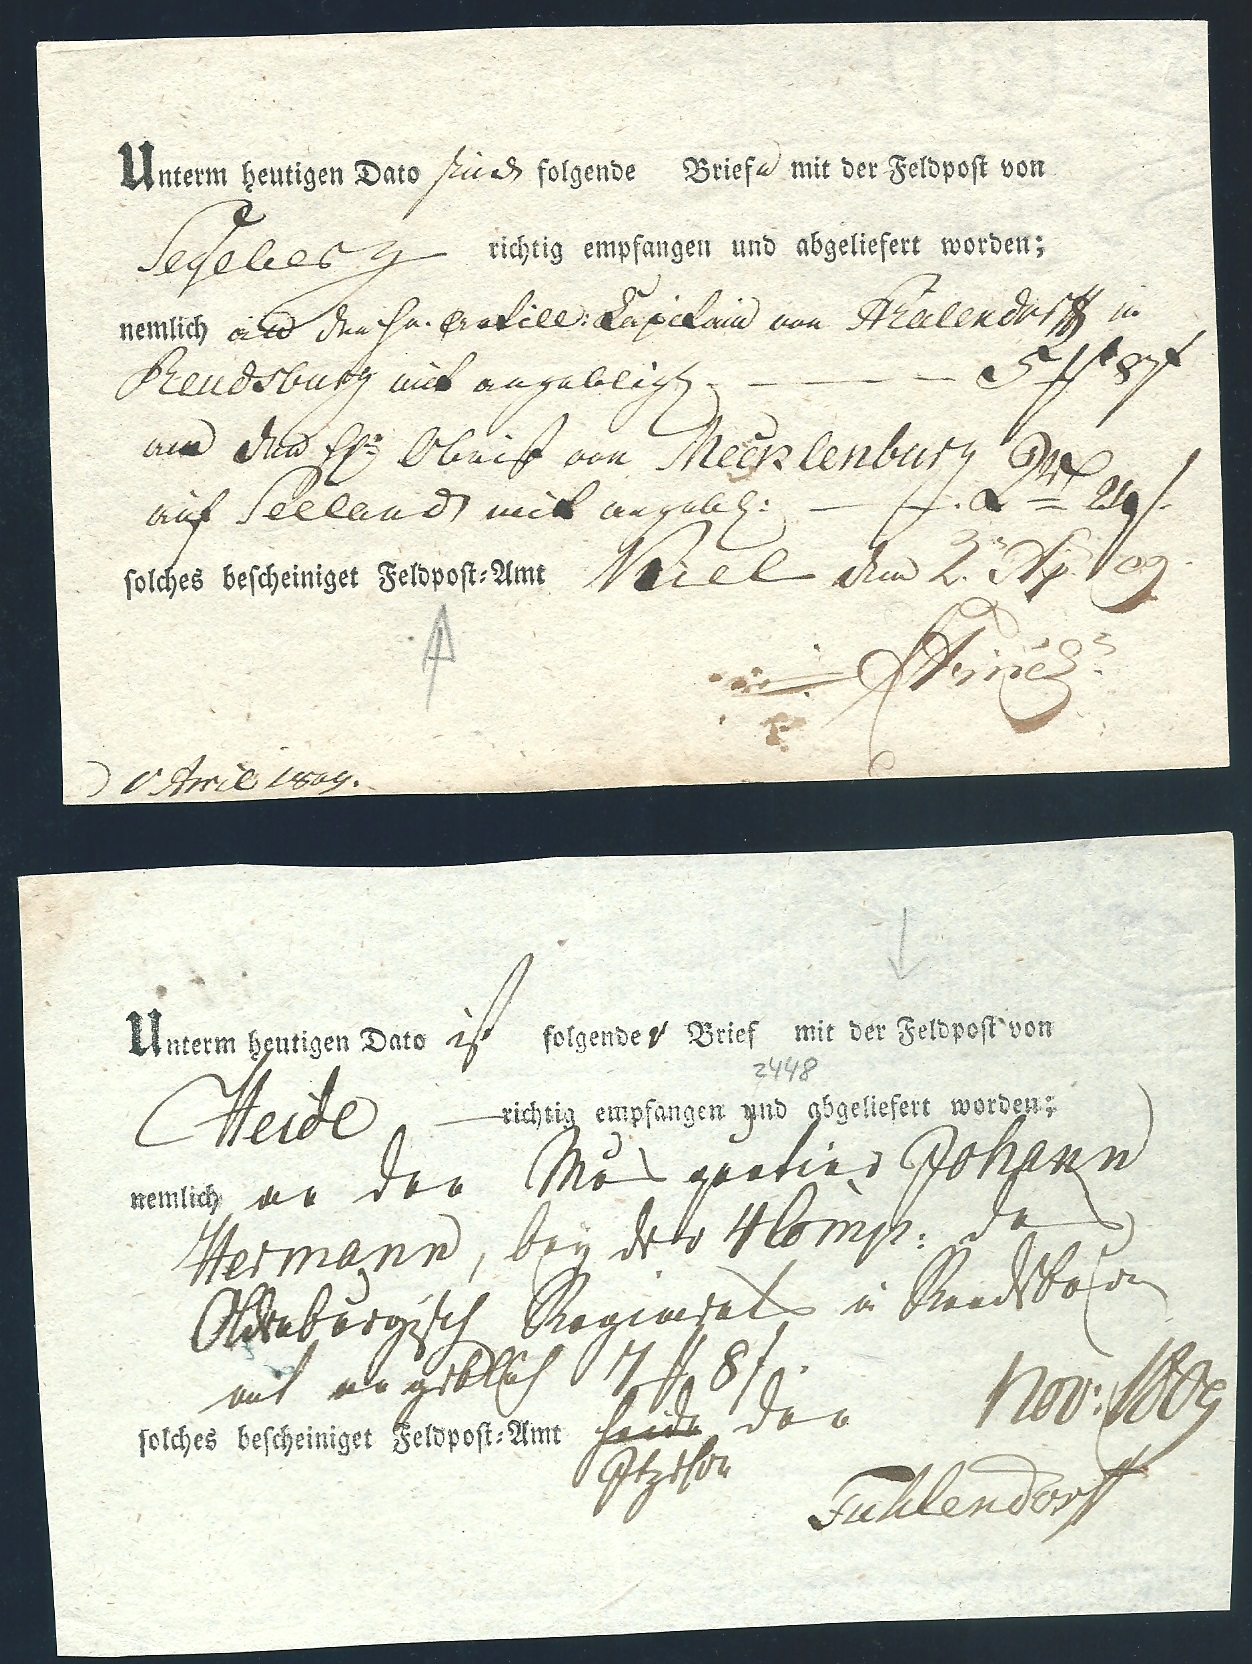 Unterm heutigen Dato sind folgende Briefe mit der Feldpost von
Segeberg richtig empfangen und abgeliefert worden;
nemlich an den H. Artill: Capitain von in
Rendsburg mit angeblich
an den H: Obrist von Mecklenburg
auf Seeland mit angebl:
solches bescheiniget Feldpost-Amt Kiel den 2. Ap 09.
April 1809.
Unterm heutigen Dato ist folgender Brief mit der Feldpost von
2448
Heide richtig empfangen und abgeliefert worden;
nemlich an den Musquetier Johann
Hermann, bey der 4 Comp: des
Oldenburgisch Regiments in Rendsburg
mit angeblich 7 8
solches bescheiniget Feldpost-Amt Heide den Nov: 1809
Itzehoe
Fuhlendorff